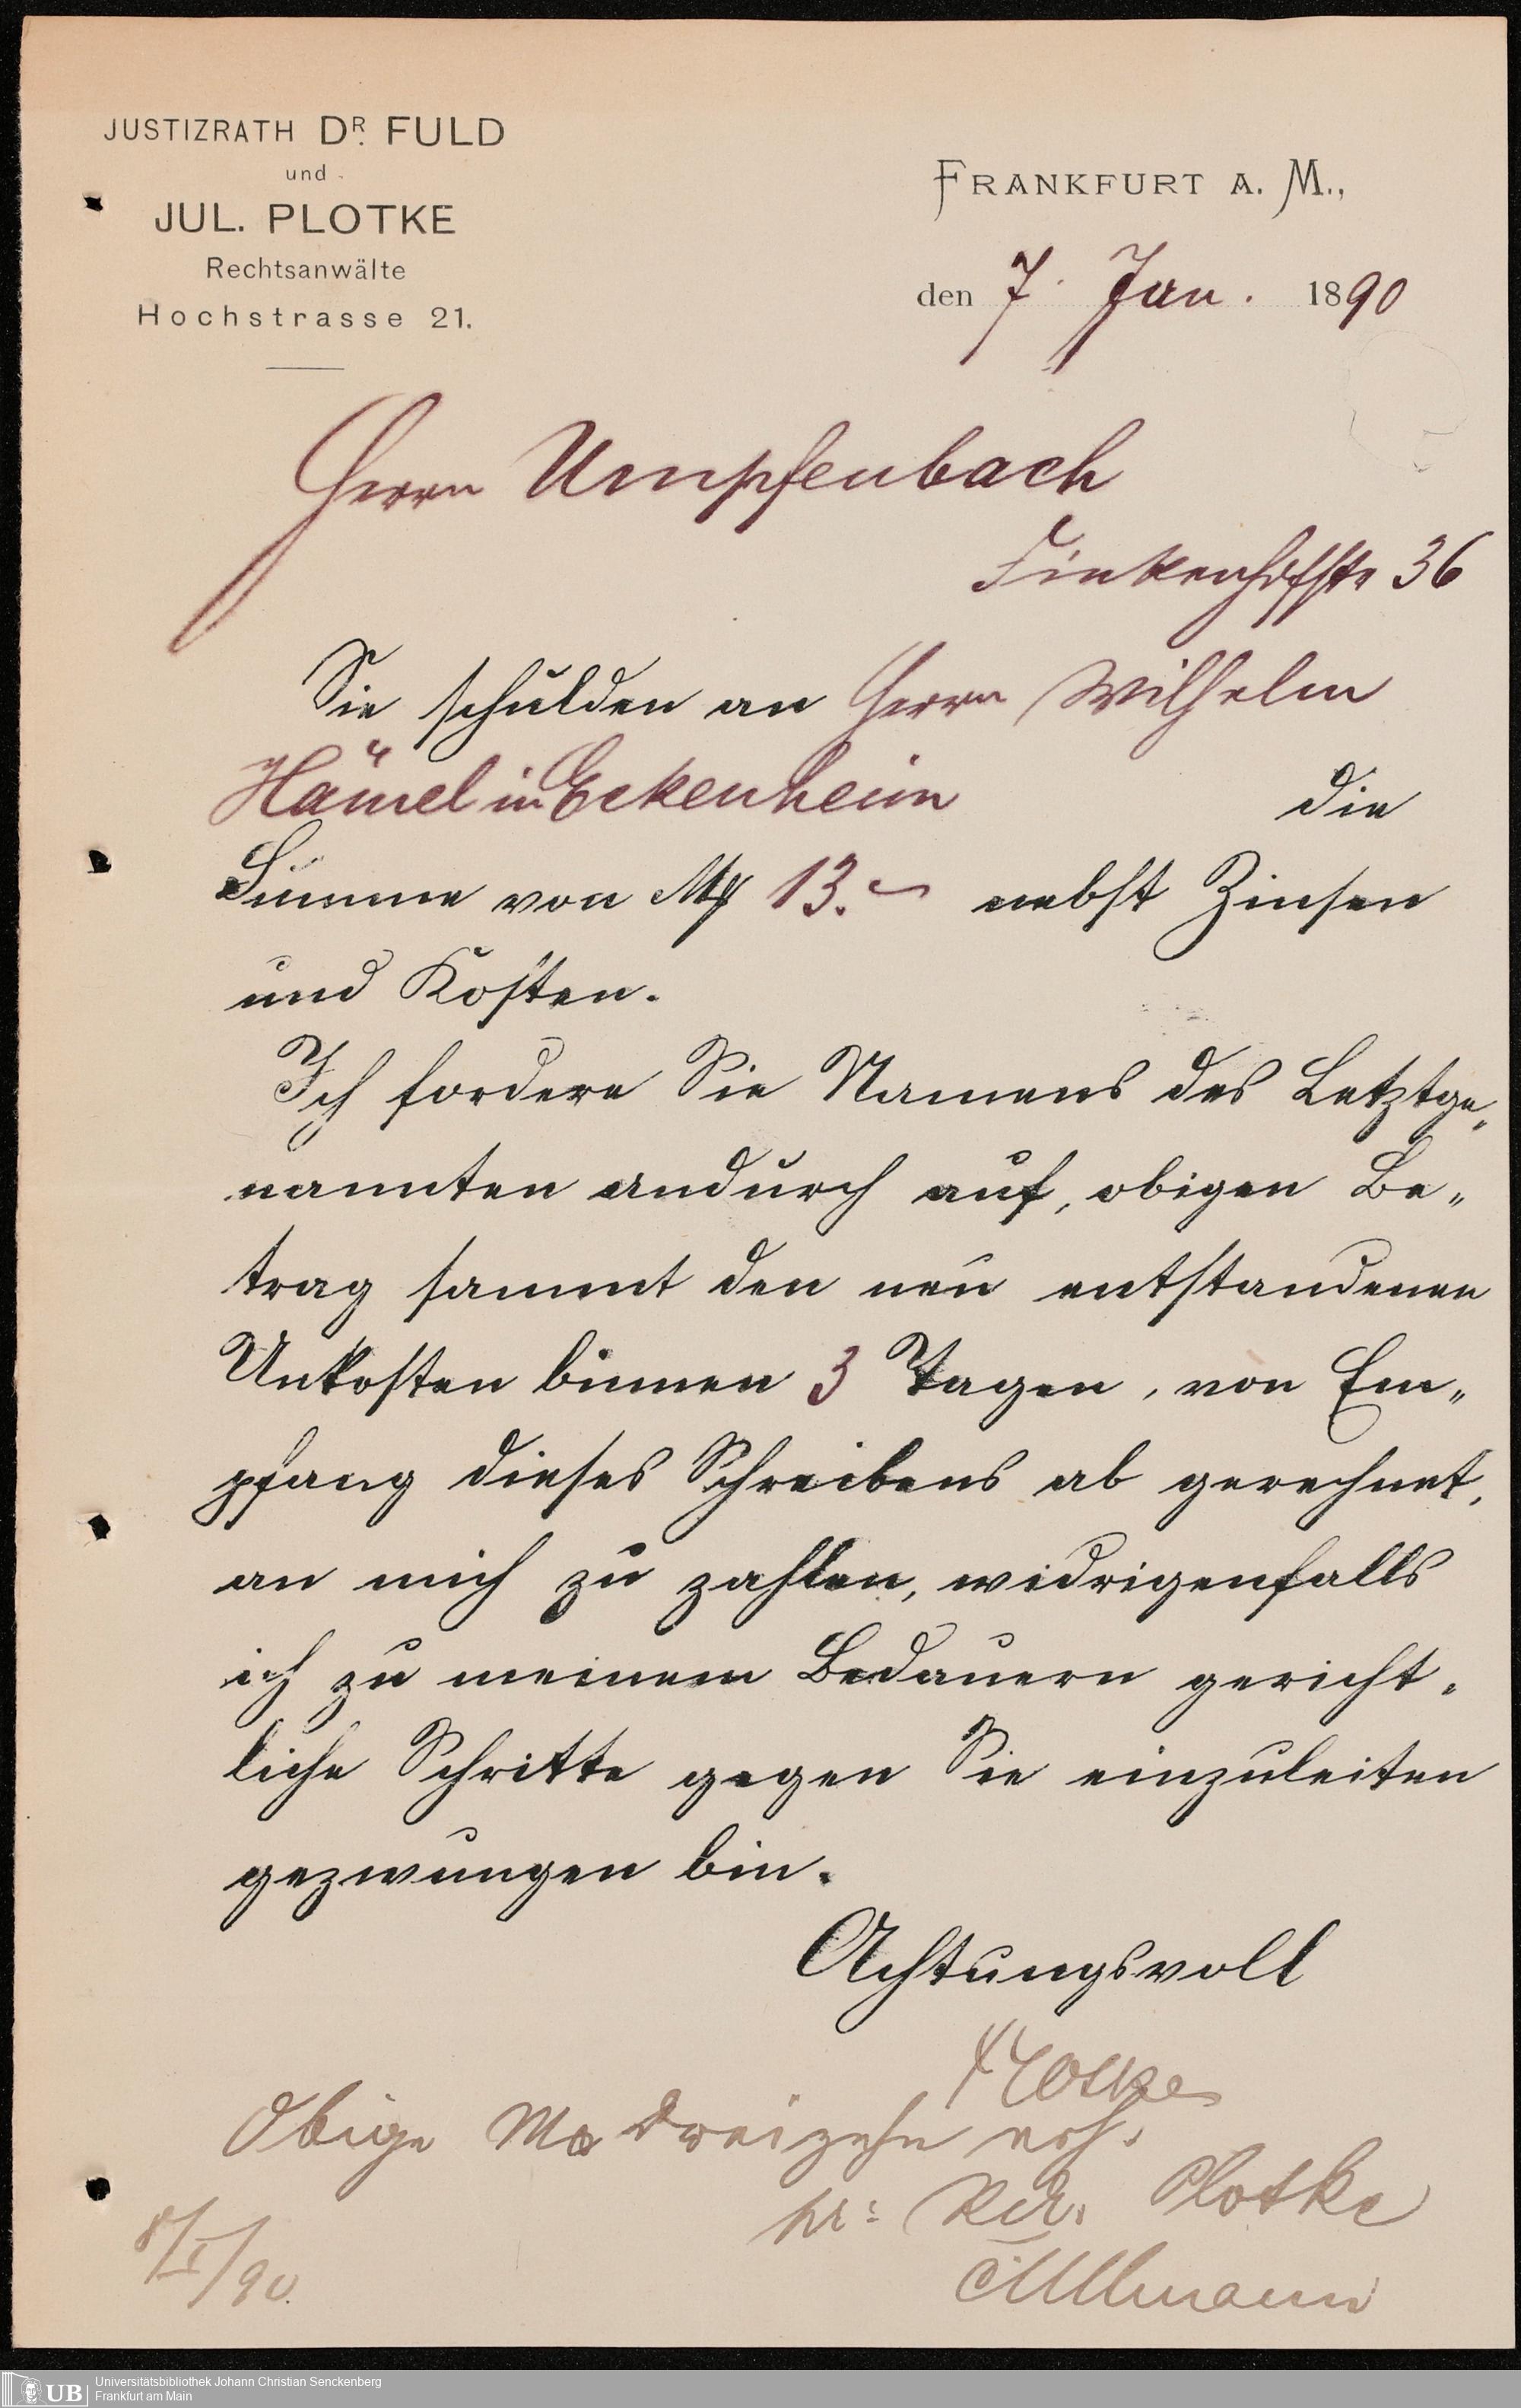 JUSTIZRATH DR. FULD
und
JUL. PLOTKE
Rechtsanwälte
Hochstrasse 21.
FRANKFURT A. M.,
den 7. Jan. 1890
Herrn Umpfenbach
Finkenhofstr 36
Sie schulden an Herrn Wilhelm
Hämel in Eckenheim die
Summe von M 13.- nebst Zinsen
und Kosten.
Ich fordere Sie Namens des Letztge„
nannten andurch auf, obigen Be„
trag sammt den neu entstandenen
Unkosten binnen 3 Tagen, von Em„
pfang dieses Schreibens ab gerechnet,
an mich zu zahlen, widrigenfalls
ich zu meinem Bedauern gericht„
liche Schritte gegen Sie einzuleiten
gezwungen bin.
Achtungsvoll
Plotke
Obige M dreizehn erh.
pr: Plotke
Ullmann
8/I/90.
UB Universitätsbibliothek Johann Christian Senckenberg
Frankfurt am Main